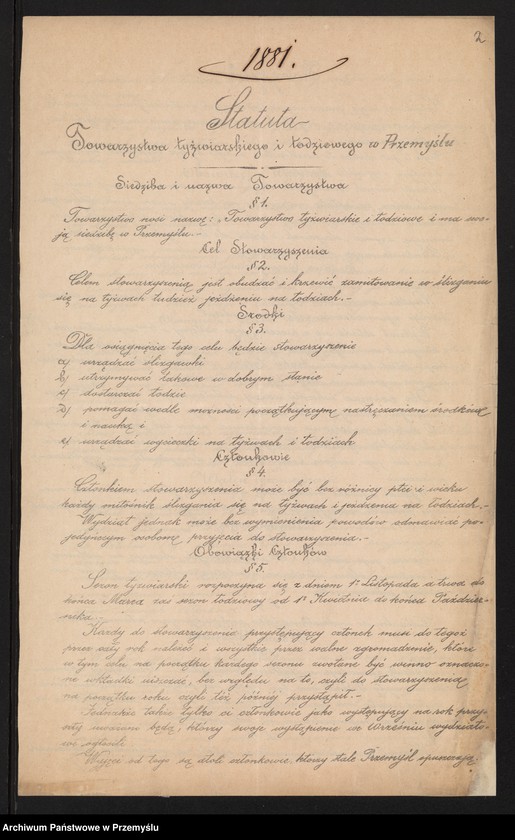 2
1881.
Statuta
Towarzystwa łyżwiarskiego i łodziowego w Przemyślu
Siedziba i nazwa Towarzystwa
§ 1.
Towarzystwo nosi nazwę: „Towarzystwo łyżwiarskie i łodziowe i ma swo-
ją siedzibę w Przemyślu.-
Cel Stowarzyszenia
§ 2.
Celem stowarzyszenia jest obudzać i krzewić zamiłowanie w ślizganiu
się na łyżwach tudzież jeżdżeniu na łodziach.-
Środki
§ 3.
Dla osiągnięcia tego celu będzie stowarzyszenie
a) urządzać ślizgawki
b) utrzymywać takowe w dobrym stanie
c) dostarczać łodzie
d) pomagać wedle możności początkującym nastręczaniem środków
i nauką i
e) urządzać wycieczki na łyżwach i łodziach
Członkowie
§ 4.
Członkiem stowarzyszenia może być bez różnicy płci i wieku
każdy miłośnik ślizgania się na łyżwach i jeżdżenia na łodziach.-
Wydział jednak może bez wymienienia powodów odmawiać po-
jedyńczym osobom przyjęcia do stowarzyszenia.-
Obowiązki Członków
§ 5.
Sezon łyżwiarski rozpoczyna się z dniem 1go Listopada a trwa do
końca Marca zaś sezon łodziowy od 1go Kwietnia do końca Paździer-
nika.
Każdy do stowarzyszenia przystępujący członek musi do tegoż
przez cały rok należeć i wszystkie przez walne zgromadzenie, które
w tym celu na początku każdego sezonu zwołane być winno oznaczo-
ne wkładki uiszczać, bez względu na to, czyli do stowarzyszenia
na początku roku czyli też później przystąpił.-
Jednakże takie tylko ci członkowie jako występujący na rok przy-
szły uważani będą, którzy swoje wystąpienie we Wrześniu wydziało-
wi zgłosili.
Wyjęci od tego są atoli członkowie, którzy stale Przemyśl opuszczają.
Archiwum Państwowe w Przemyślu